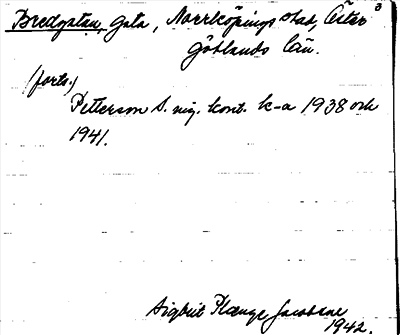 Bredgatan, Gata, Norrköpings stad, Öster 3
götlands län.
(forts.)
Petterson S. nig. kont. k-a 1938 och
1941.
Sigbrit Plænge Jacobson
1942.